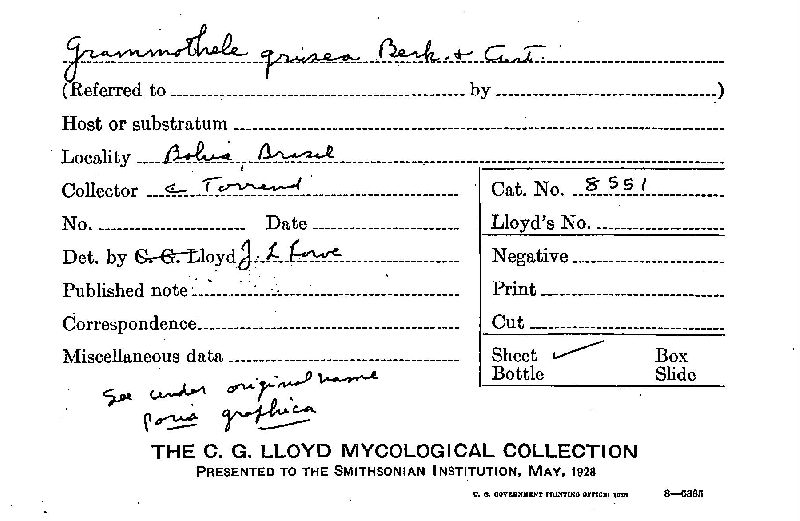 Grammothele grisea Berk. & Curt.
(Referred to by )
Host or substratum
Locality Bahia, Brasil
Collector C Torrend
Cat. No. 8551
No. Date
Lloyd's No.
Det. by C. G. Lloyd J. L Lowe
Negative
Published note
Print
Correspondence
Cut
Miscellaneous data
Sheet ✓ Box
Bottle Slide
See under original name
Poria graphica
THE C. G. LLOYD MYCOLOGICAL COLLECTION
PRESENTED TO THE SMITHSONIAN INSTITUTION, MAY, 1928
U. S. GOVERNMENT PRINTING OFFICE:
8—6385